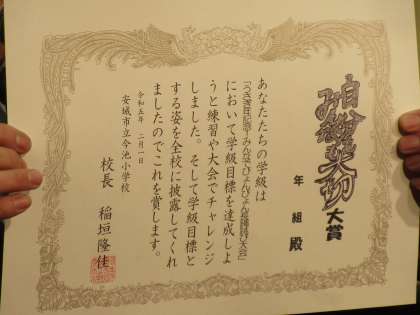 大賞
年 組 殿
あなたたちの学級は
「うさぎ年記念!みんなでぴょんぴょん長縄跳び大会」
において学級目標を達成しよ
うと練習や大会でチャレンジ
しました。そして学級目標と
する姿を全校に披露してくれ
ましたのでこれを賞します。
令和五年 二月一日
安城市立今池小学校
校長 稲垣隆佳